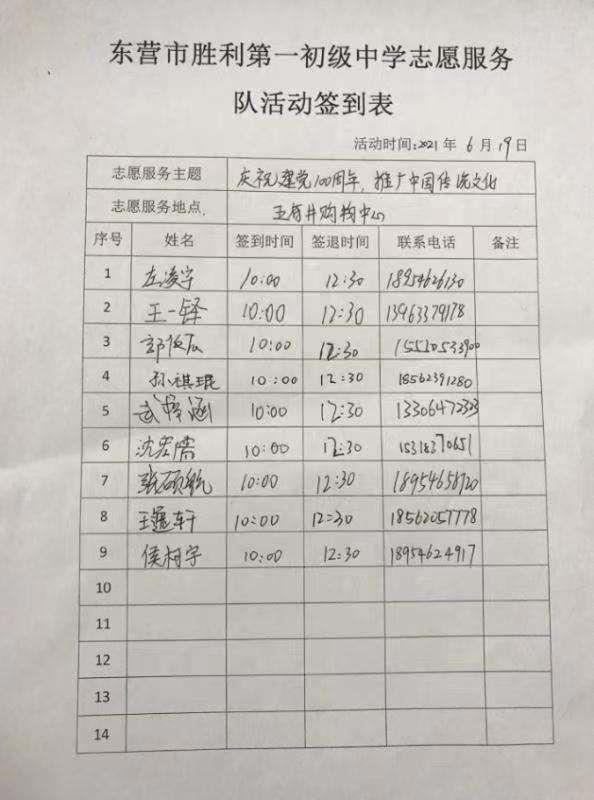 东营市胜利第一初级中学志愿服务
队活动签到表
活动时间:2021年 6月19日
志愿服务主题 庆祝建党100周年，推广中国传统文化
志愿服务地点. 王府井购物中心
序号 姓名 签到时间 签退时间 联系电话 备注
1 左凌宇 10:00 12:30 18954626130
2 王一铎 10:00 12:30 13963379178
3 10:00 12:30 15520533900
4 孙祺琨 10:00 12:30 18562391280
5 武梓涵 10:00 12:30 13306472323
6 沈宏儒 10:00 12:30 15318370651
7 张硕航 10:00 12:30 18954658720
8 10:00 12:30 18562057778
9 侯柯宇 10:00 12:30 18954624917
10
11
12
13
14